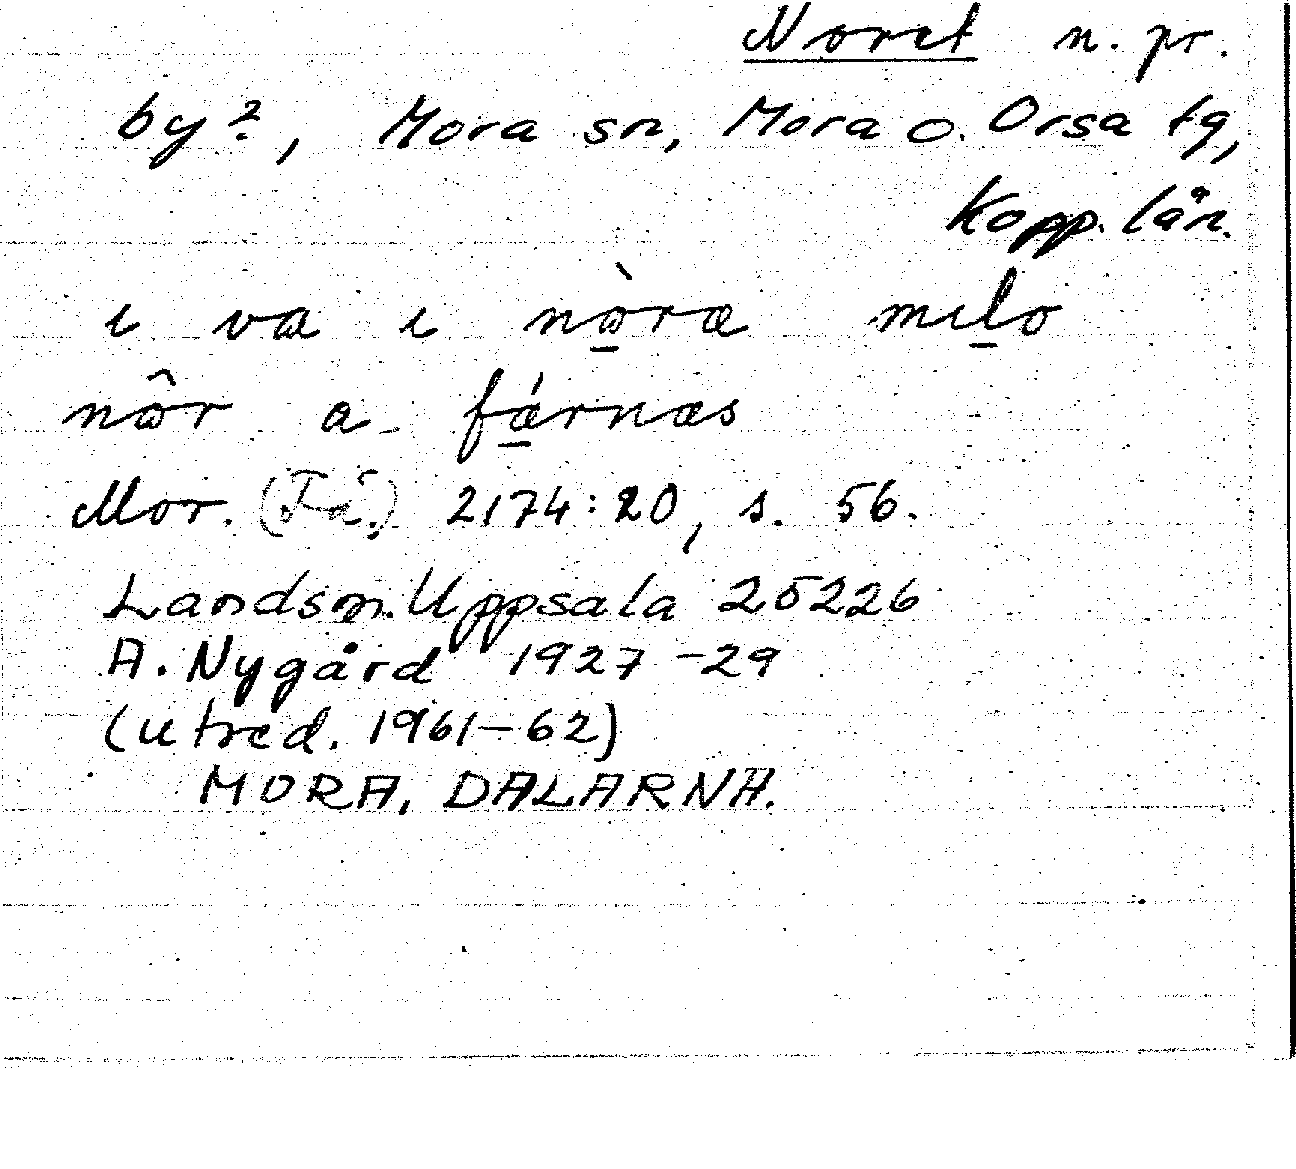 Noret n. pr.
by ?, Mora sn, Mora o. Orsa tg,
Kopp. län.
ı va ı nòra mılo
nôr a fárnæs
Mor. (Få.) 2174:20, s. 56.
Landsm. Uppsala 25226
A. Nygård 1927-29
(utred. 1961-62)
MORA, DALARNA.